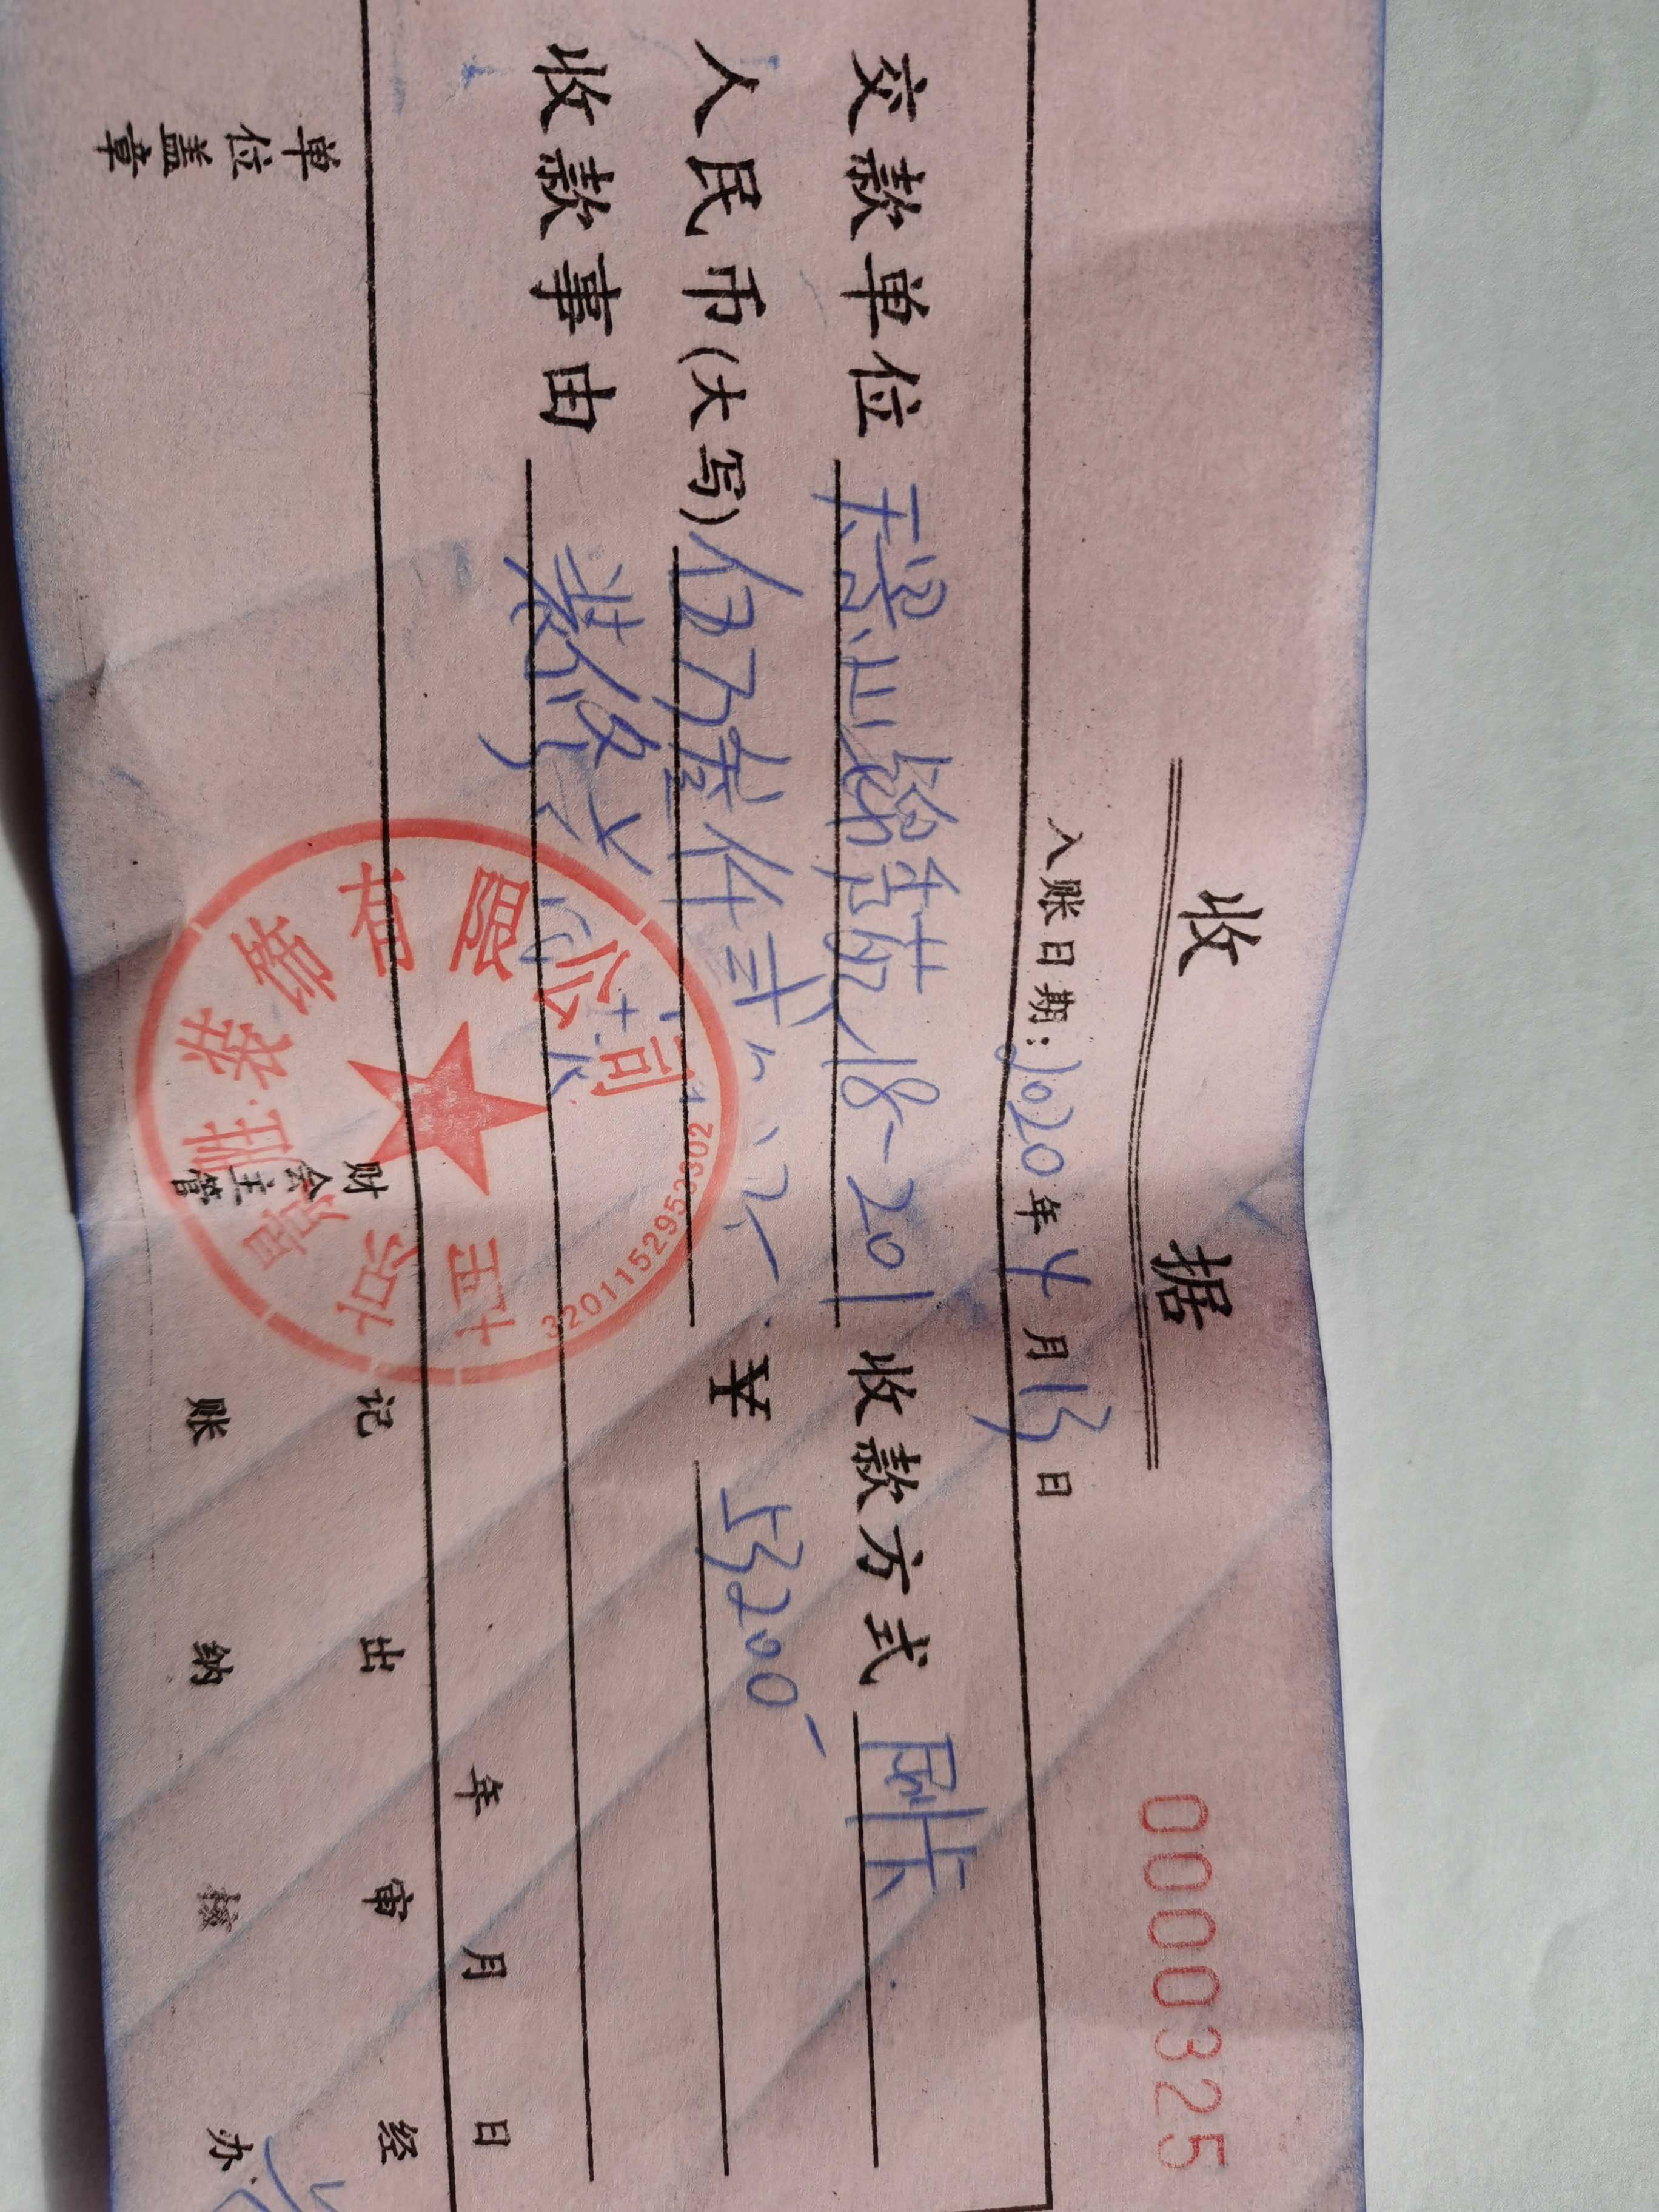 收 据
0000325
入账日期：2020年4月13日
交款单位 18-201 收款方式 刷卡
人民币(大写) 伍万叁仟贰 ¥ 53200
收款事由 装修
年 月 日
有限公司
3201152953302
单位盖章 财会主管 记账 出纳 审核 经办